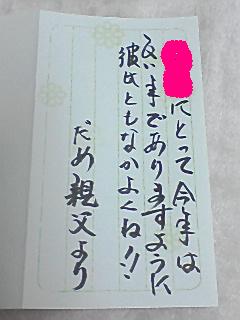 にとって今年は
良い年でありますように
彼氏ともなかよくね!!
だめ親父より